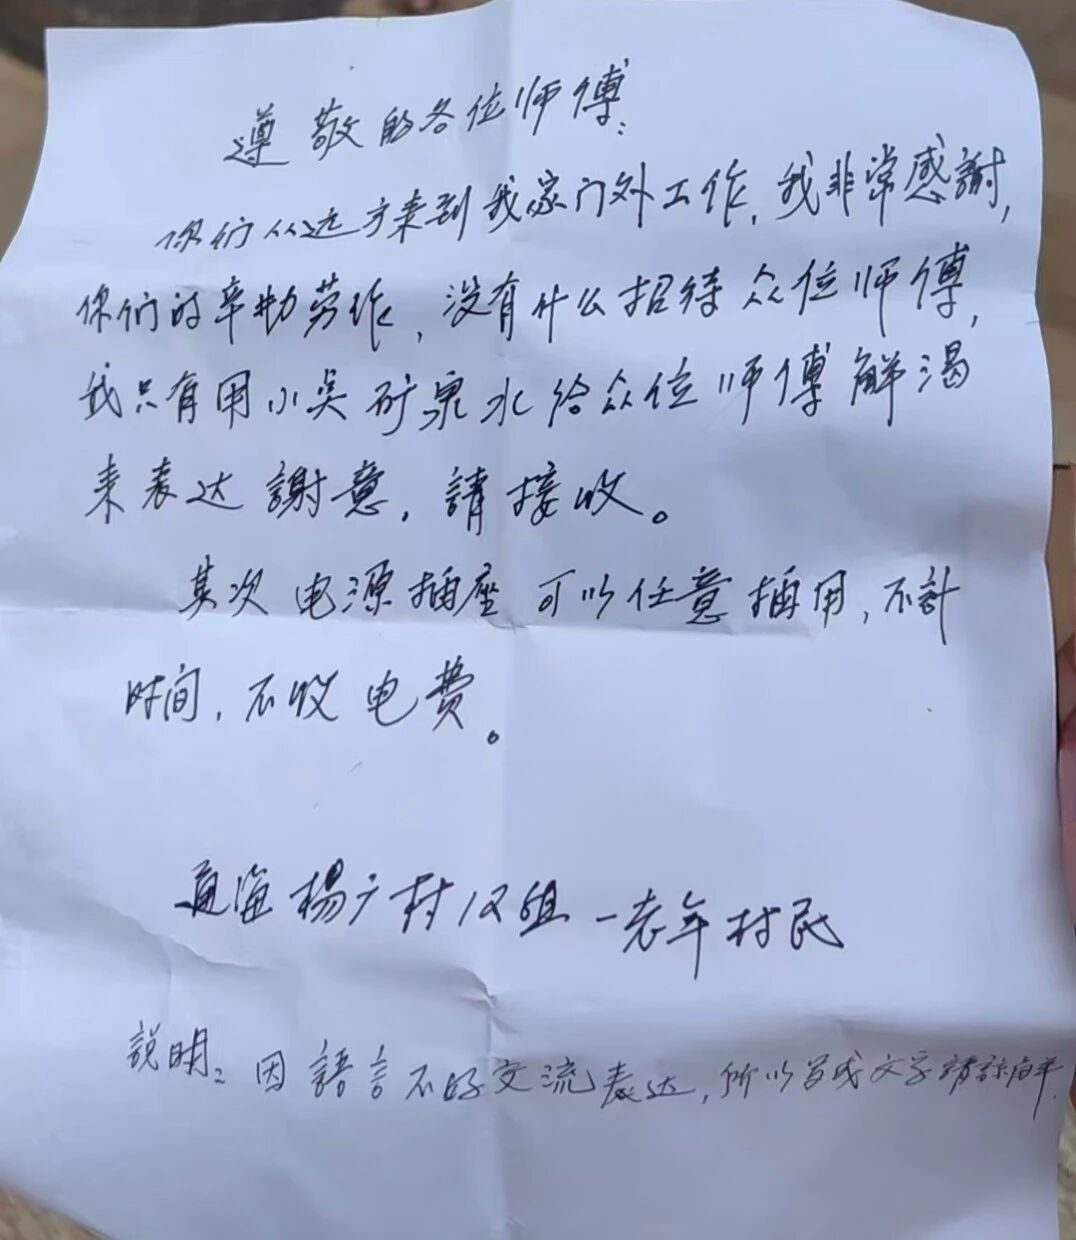 遵敬的各位师傅:
你们从远方来到我家门外工作,我非常感謝,
你们的辛勤劳作,没有什么招待众位师傅,
我只有用小矿泉水给众位师傅解渴
来表达謝意,請接收。
其次电源插座可以任意插用,不計
时间,不收电费。
通海杨广村12组一老年村民
説明:因語言不好交流表达,所以写成文字請諒解.